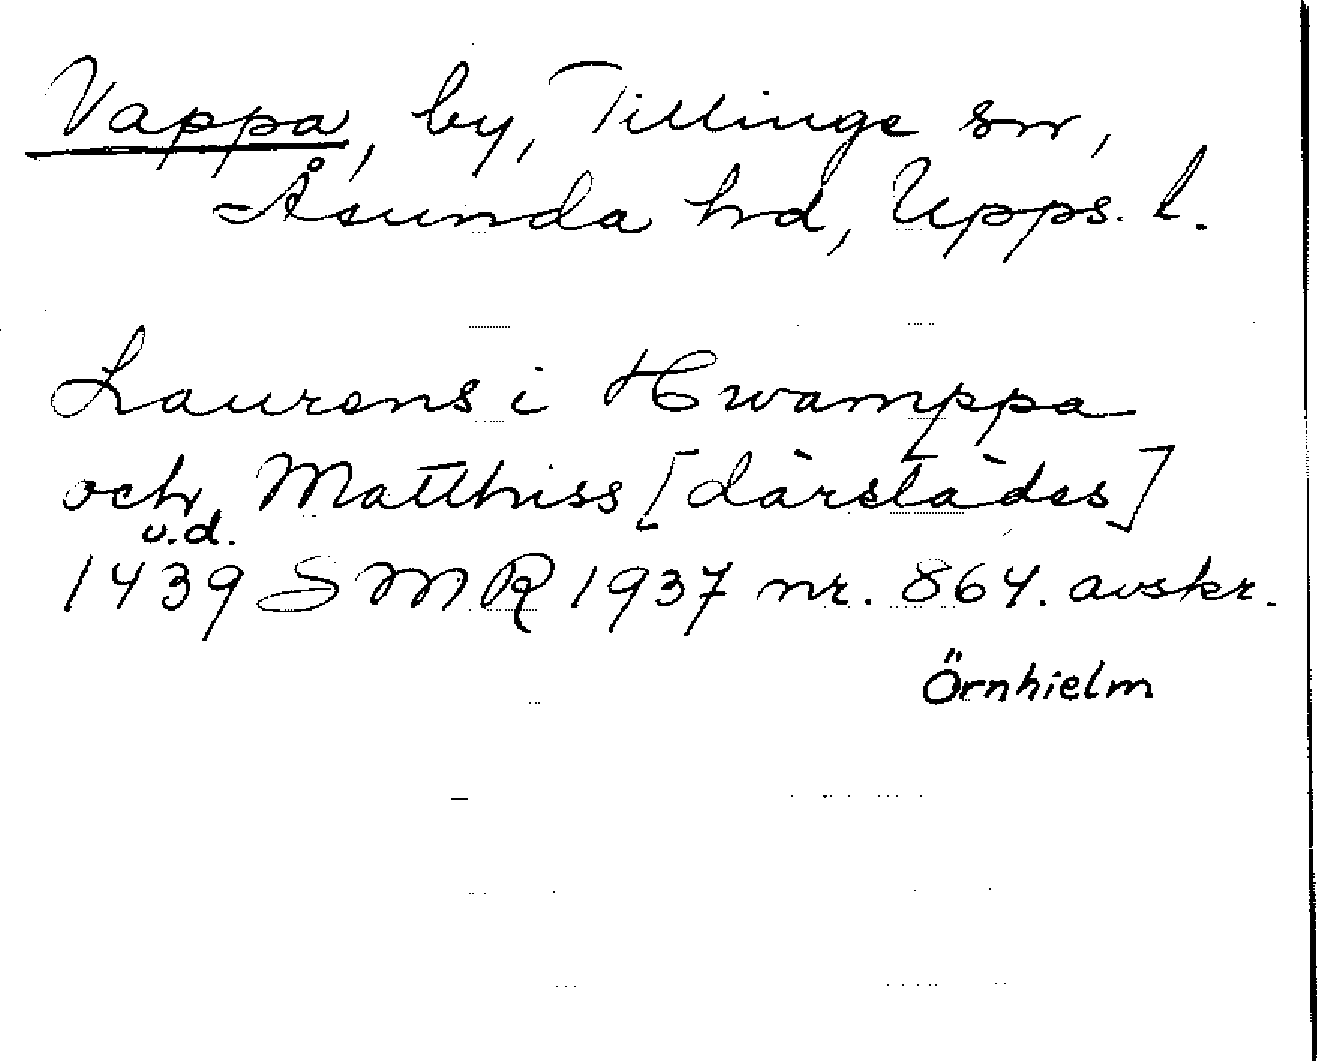 Vappa, by, Tillinge sn,
Åsunda hd, Upps. l.
Laurens i Hwamppa
och Matthiss [därstädes]
u.d.
1439 SMR 1937 nr. 864. avskr.
Örnhielm